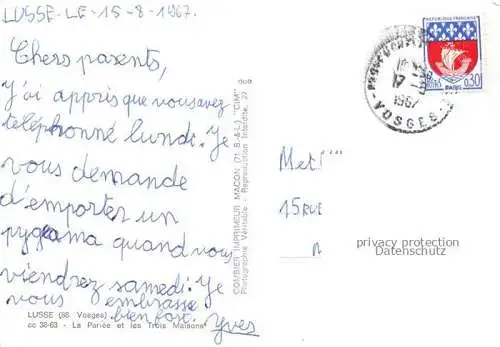 LUSSE-LE-15-8-1967.
Chers parents,
J'ai appris que vous avez
téléphonné lundi. Je
vous demande
d'emporter un
pygeama quand vous
viendrez samedi. Je
vous embrasse
bien fort. Yves
LUSSE (88. Vosges)
cc 38-63 - La Pariée et les Trois Maisons
COMBIER IMPRIMEUR MACON (71. S.-&-L.) "CIM"
Photographie Véritable - Reproduction Interdite.
REPUBLIQUE FRANÇAISE
POSTES
0,30
PARIS
17-8
1967
VOSGES
Met
15 RUE
privacy protection
Datenschutz